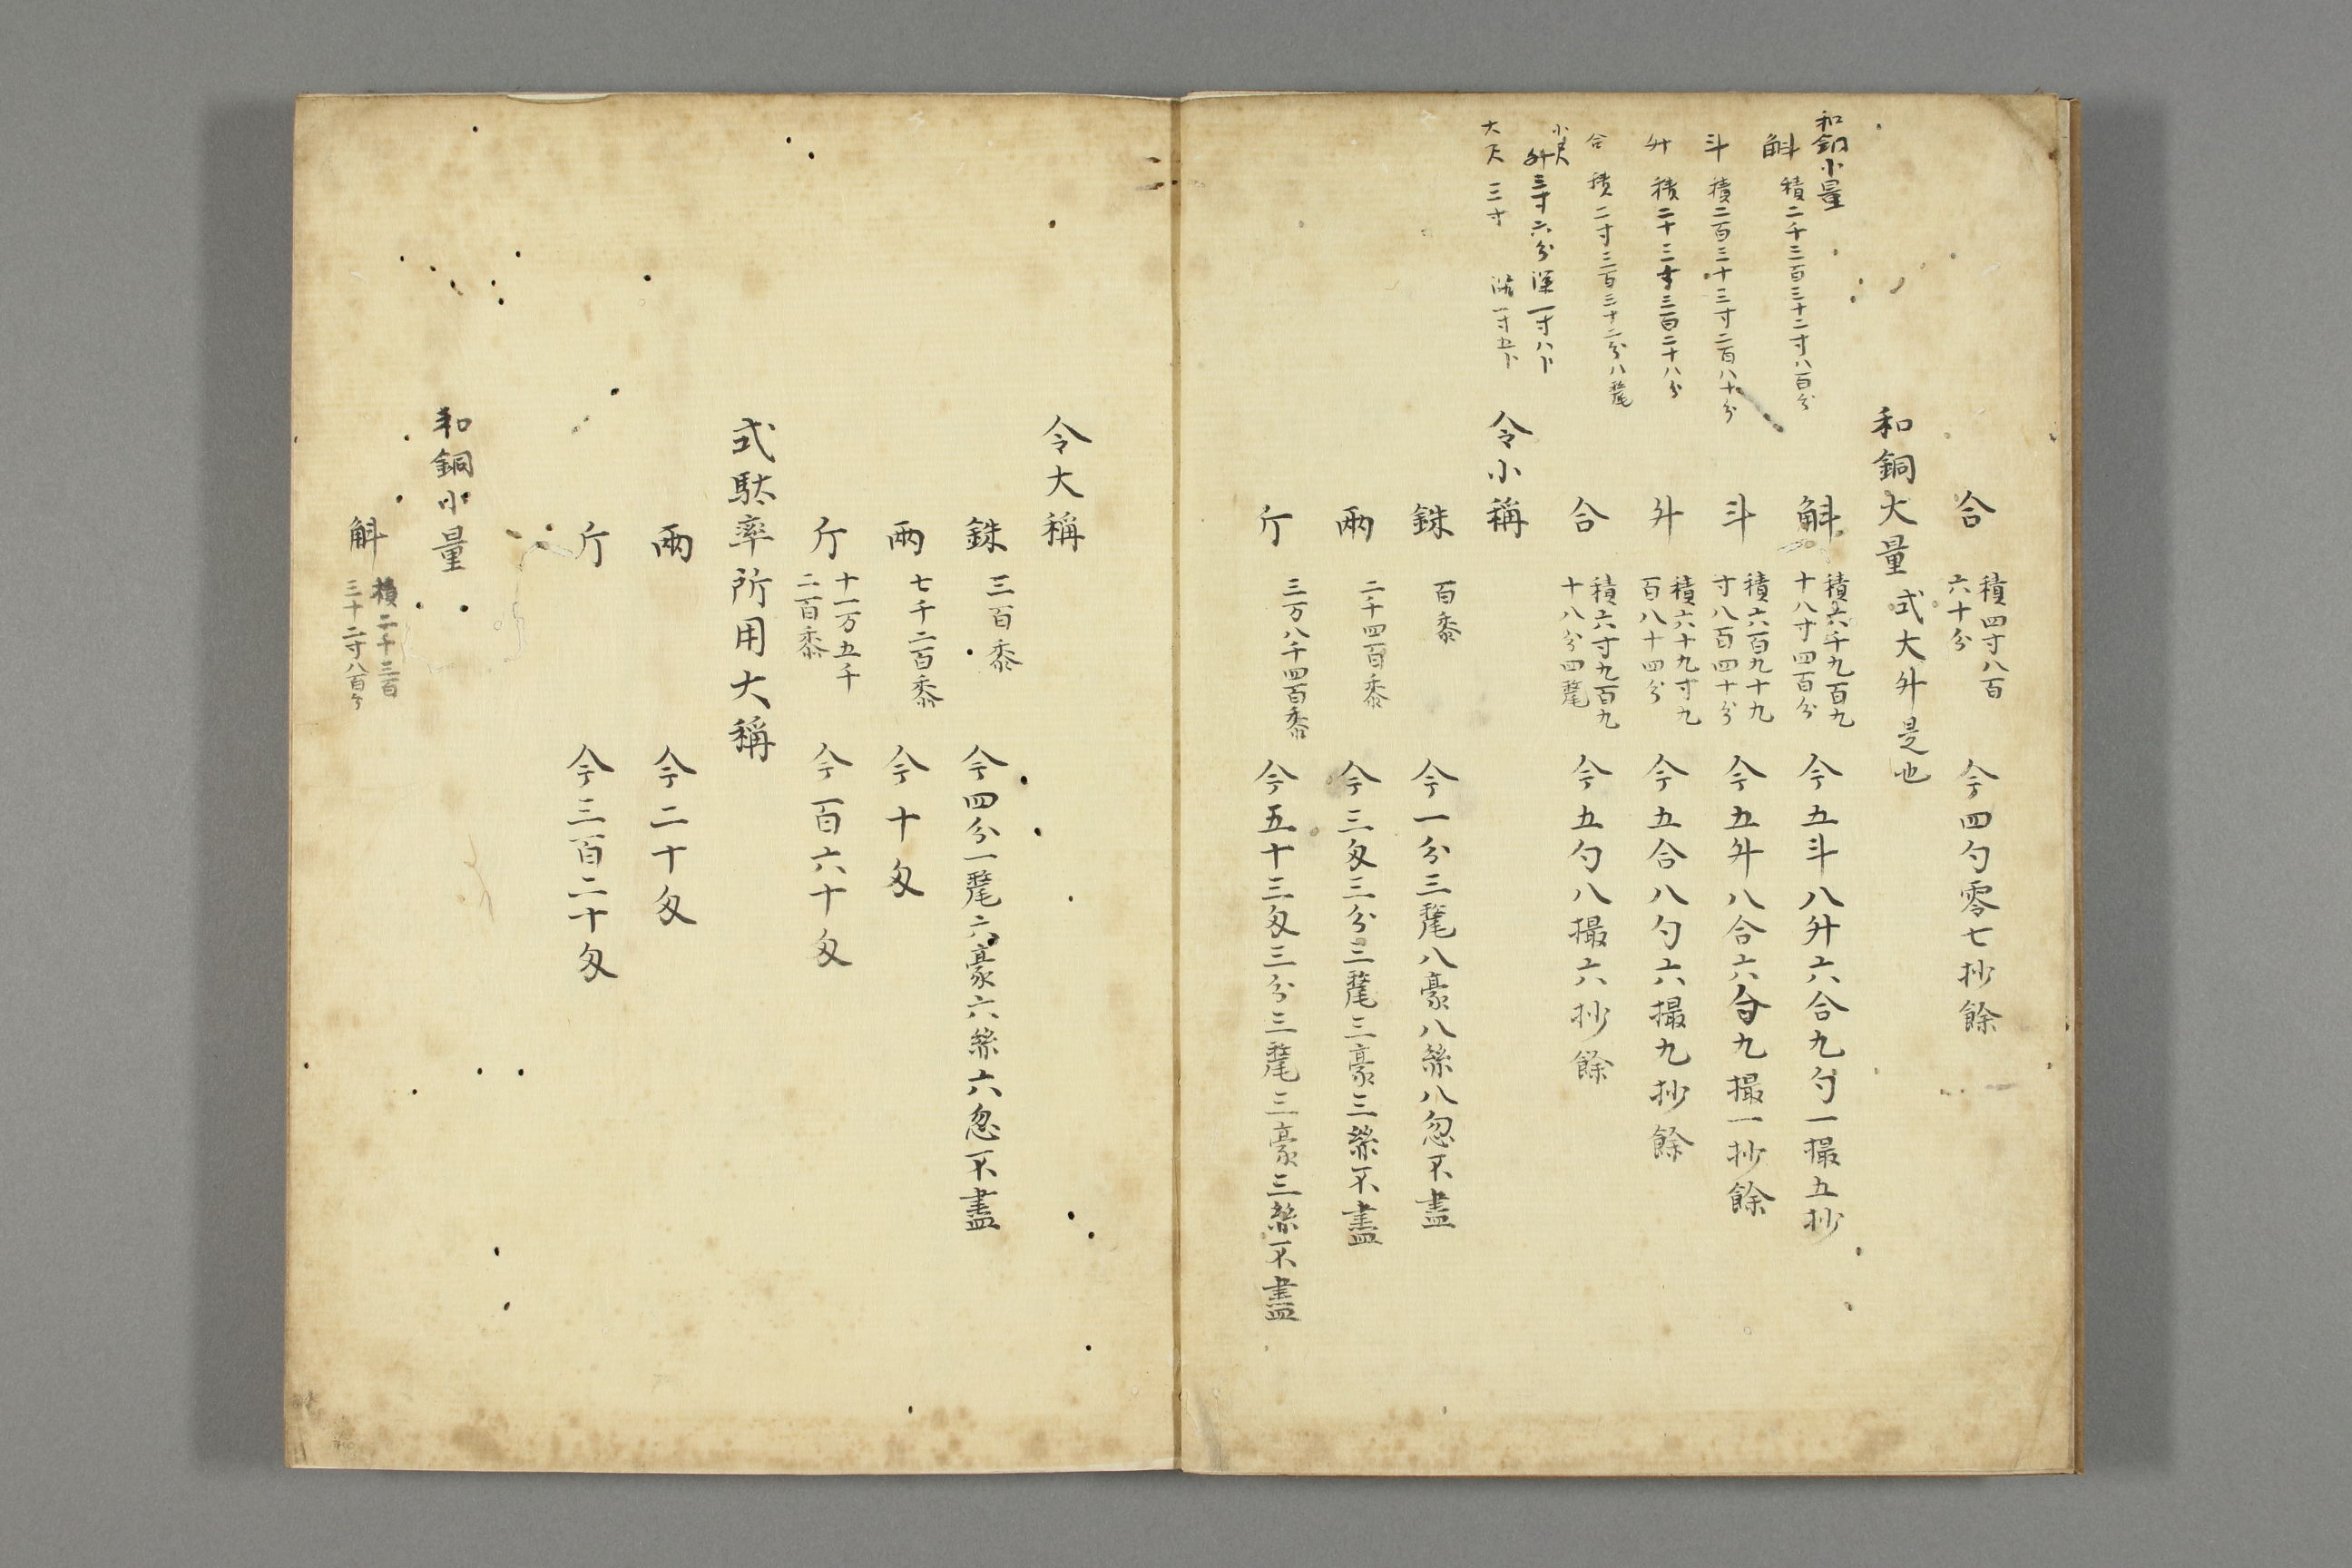 合 積四寸八百六十分 今四勺零七抄餘
和銅大量 式大升是也
斛 積六千九百九十八寸四百分 今五斗八升六合九勺一撮五抄
斗 積六百九十九寸八百四十分 今五升八合六勺九撮一抄餘
升 積六十九寸九百八十四分 今五合八勺六撮九抄餘
合 積六寸九百九十八分四氂 今五勺八撮六抄餘
令小稱
銖 百黍 今一分三氂八豪八絲八忽不盡
兩 二千四百黍 今三匁三分三氂三豪三絲不盡
斤 三万八千四百黍 今五十三匁三分三氂三豪三絲不盡
和銅小量
斛 積二千三百三十二寸八百分
斗 積二百三十三寸二百八十分
升 積二十三寸三百二十八分
合 積二寸三百三十二分八氂
三寸六分 深一寸八卜
大尺 三寸 深一寸五卜
令大稱
銖 三百黍 今四分一氂六豪六絲六忽不盡
兩 七千二百黍 今十匁
斤 十一万五千二百黍 今百六十匁
式駄率所用大稱
兩 今二十匁
斤 今三百二十匁
和銅小量
斛 積二千三百三十二寸八百分